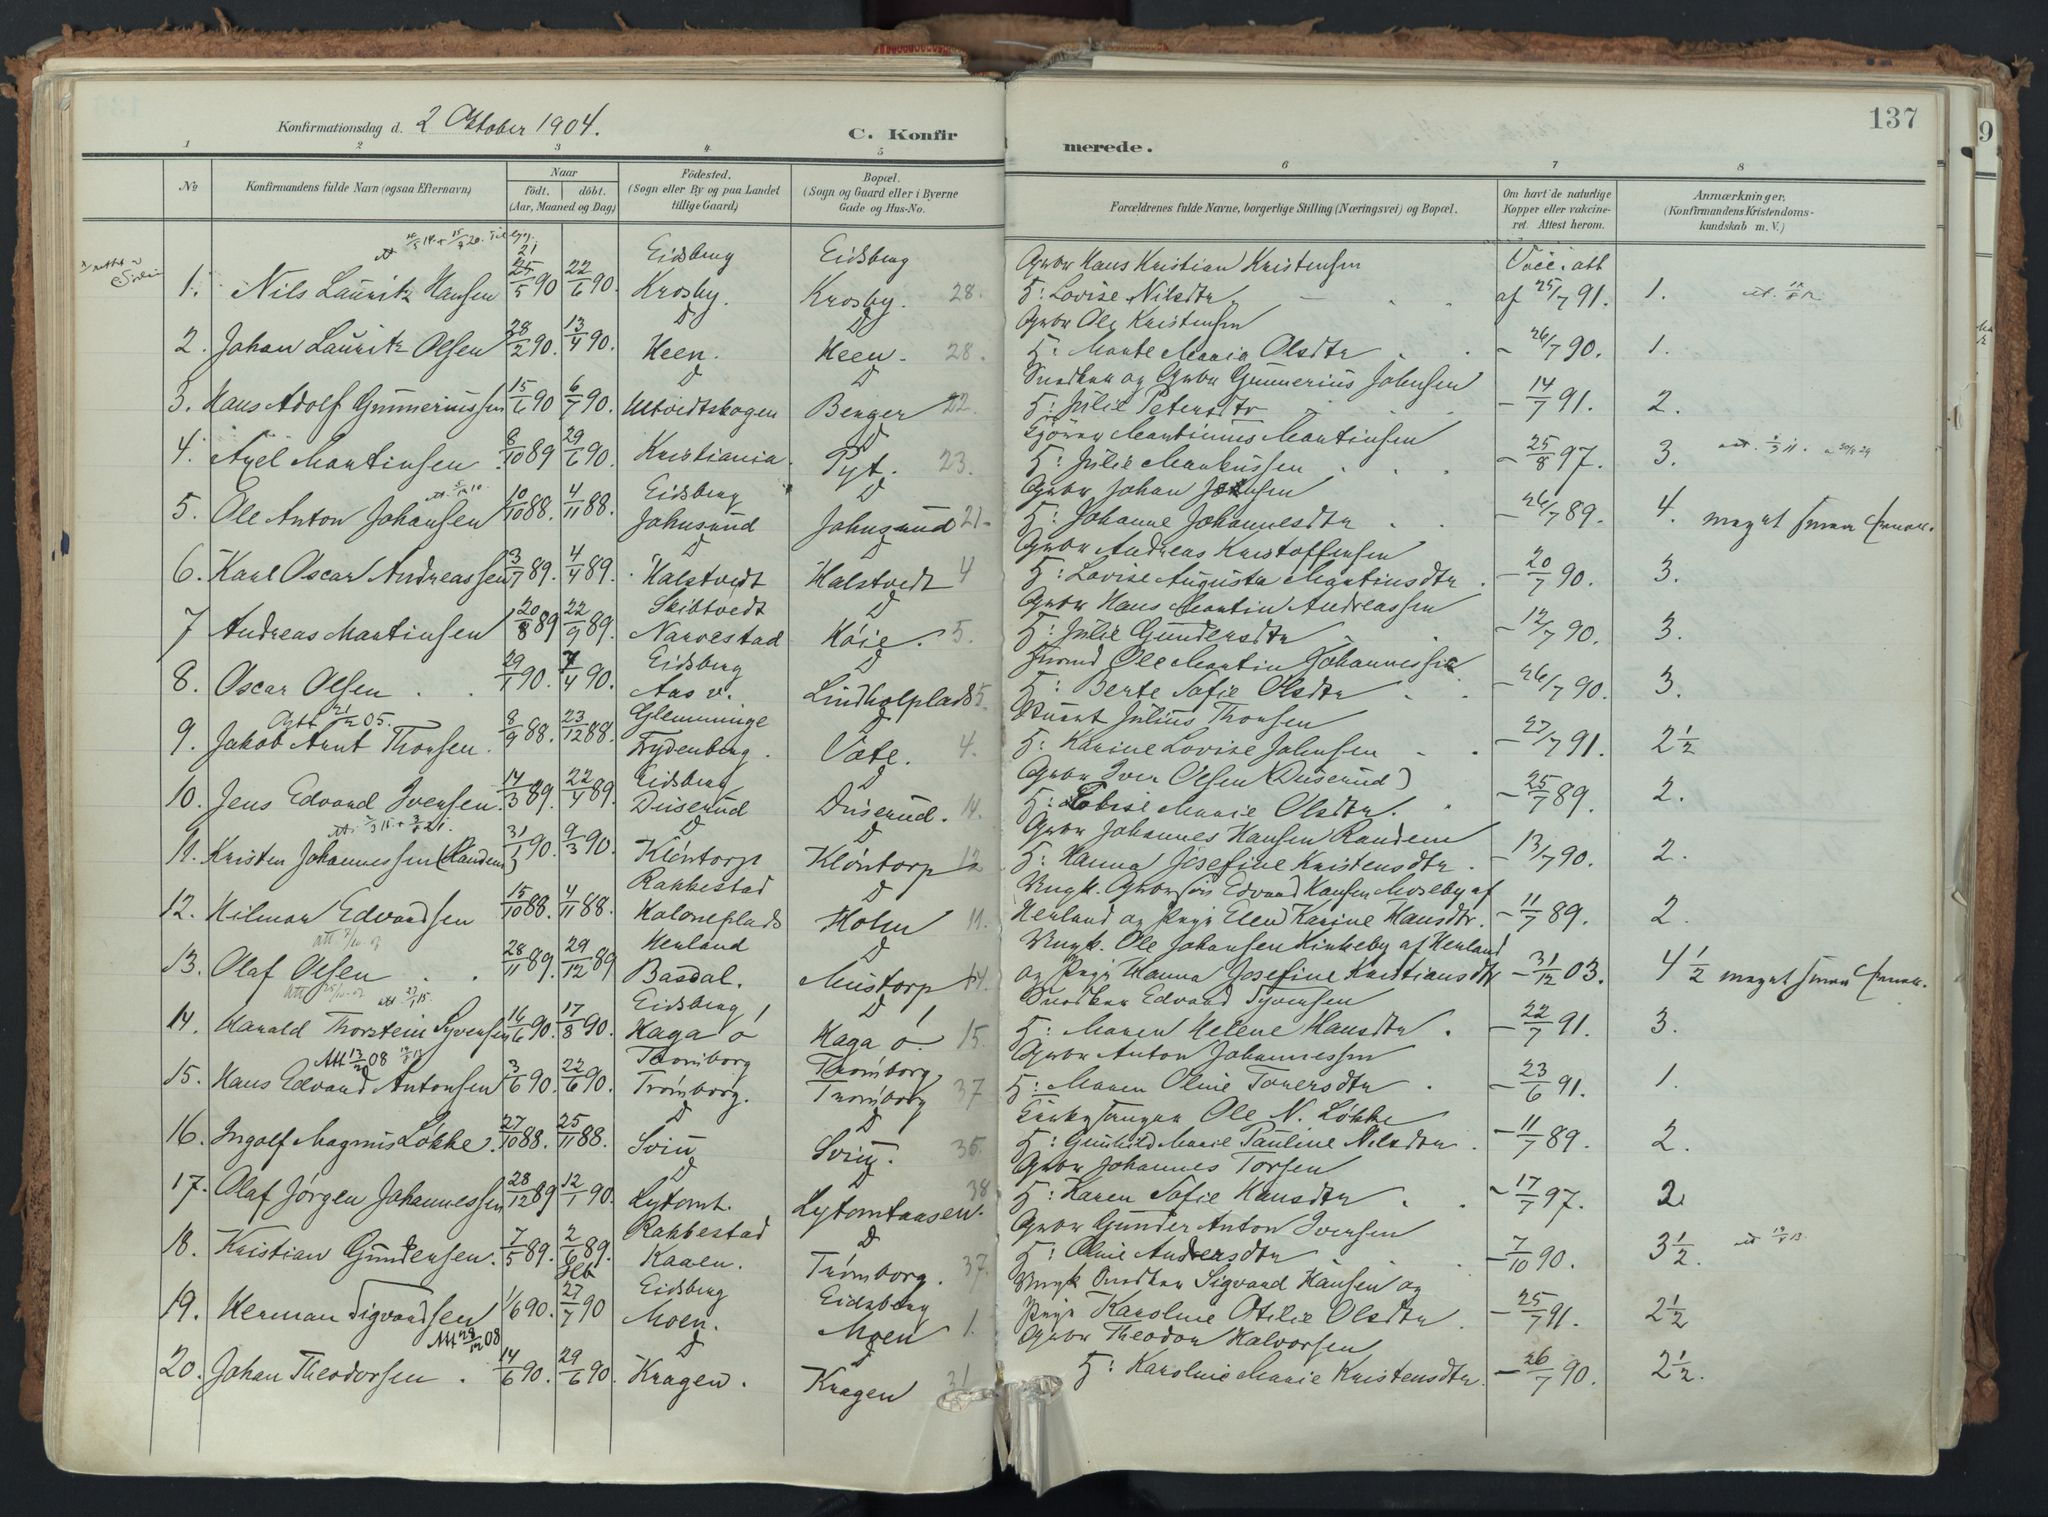 137
Konfirmationsdag d. 2 Oktober 1904.
C. Konfirmerede.
1 2 3 4 5 6 7 8
No
Konfirmandens fulde Navn (ogsaa Efternavn)
Naar
födt. döbt.
(Aar, Maaned og Dag)
Födested.
(Sogn eller By og paa Landet
tillige Gaard)
Bopæl.
(Sogn og Gaard eller i Byerne
Gade og Hus-No.
Forældrenes fulde Navne, borgerlige Stilling (Næringsvei) og Bopæl.
Om havt de naturlige
Kopper eller vakcine-
ret. Attest herom.
Anmærkninger,
(Konfirmandens Kristendoms-
kundskab m. V.)
Eidsberg Eidsberg Grbr Hans Kristian Kristensen Vacc. att
1. Nils Lauritz Hansen 25/5 90 22/6 90. Krosby. Krosby. 28. H: Lovise Nilsdtr af 25/7 91. 1.
D D Grbr Ole Kristensen
2. Johan Lauritz Olsen 28/2 90. 13/4 90. Heen. Heen. 28. H: Marte Maria Olsdtr - 26/7 90. 1.
D D Snedker og Grbr Gunnerius Johnsen
3. Hans Adolf Gunneriussen 15/6 90 6/7 90. Ultvedtskogen Berger 22. H: Julie Petersdtr - 14/7 91. 2.
D Martinius Martinsen
4. Axel Martinsen. 8/10 89 29/6 90. Kristiania. Tyt. 23. H: Julie Markussen - 25/8 97. 3.
Eidsberg D Grbr Johan Jensen
5. Ole Anton Johansen 10/10 88. 4/11 88. Johnsrud Johnsrud 21. H: Johanne Johannesdtr - 26/7 89. 4. meget smaa
D D Grbr Andreas Kristoffersen
6. Karl Oscar Andreassen 3/7 89. 4/4 89. Halstvedt Halstvedt 4 H: Lovise Augusta Martinsdtr. - 20/7 90. 3.
Skibtvedt D Grbr Hans Martin Andreassen
7 Andreas Martinsen 20/8 89 22/9 89. Narvestad Høie. 5. H: Julie Gundersdtr - 12/7 90. 3.
Eidsberg D Ole Martin Johannessen
8. Oscar Olsen 29/1 90. 7/4 90. Aas v. Lindholplads 5. H: Berte Sofie Olsdtr - 26/7 90. 3.
Glemminge D Julius Thorsen
9. Jakob Arnt Thorsen. 8/9 88. 23/12 88. Frydenberg. Vate. 4. H: Karine Lovise Johnsen - 27/7 91. 2 1/2
Eidsberg D Grbr Iver Olsen (Duserud)
10. Jens Edvard Iversen. 14/3 89. 22/4 89. Duserud Duserud. 14. H: Lovise Marie Olsdtr. - 25/7 89. 2.
D D Grbr Johannes Hansen Randem
11. Kristen Johannessen (Randem) 31/1 90. 9/3 90. Kløntorp Kløntorp 12 H: Hanna Josefine Kristensdtr. - 13/7 90. 2.
Rakkestad D Ungk. Edvard Hansen Moseby af
12. Hilmar Edvardsen 15/10 88. 4/11 88. Holoneplads Holm 11. Herland og Pige Elen Karine Hansdtr. - 11/7 89. 2.
Herland D Ungk. Ole Johansen Kirkeby af Herland
13. Olaf Olsen 28/11 89. 29/12 89 Basdal. Mustorp 14. og Pige Hanna Josefine Kristiansdtr - 31/12 03. 4 1/2 meget smaa
Eidsberg D Snedker Edvard Syversen
14. Harald Thorstein Syversen 16/6 90. 17/8 90. Haga ø Haga ø. 15. H: Maren Helene Hansdtr. - 22/7 91. 3.
Att 13/2 08 Trømborg Trømborg. Grbr Anton Johannessen
15. Hans Edvard Antonsen 3/6 90. 22/6 90. Trømborg. Trømborg 37 H: Maren Oline Torersdtr. - 23/6 91. 1.
D D Kirkesanger Ole N. Løkke
16. Ingolf Magnus Løkke. 27/10 88. 25/11 88. Sviu Sviu. 35. H: Gunhild Marie Pauline Nilsdtr. - 11/7 89. 2.
D D Grbr Johannes Torsen
17. Olaf Jørgen Johannessen 28/12 89 12/1 90. Lytomt. Lytomtaasen. 38 H: Karen Sofie Hansdtr - 17/7 97. 2
Rakkestad D Grbr Gunder Anton Iversen
18. Kristian Gundersen. 7/5 89. 2/6 89. Kaaen. Trømborg. 37. H: Oline Andersdtr - 7/10 90. 3 1/2.
Eidsberg Eidsberg Ungk Snedker Sigvard Hansen og
19. Herman Sigvardsen 1/6 90. 27/7 90 Moen. Moen 1. Pige Karoline Otilie Olsdtr. - 25/7 91. 2 1/2
Att 28/12 08 D D Grbr Theodor Halvorsen
20. Johan Theodorsen. 14/6 90. 29/6 90. Kragen. Kragen 31. H: Karoline Marie Kristensdtr. - 26/7 90. 2 1/2.